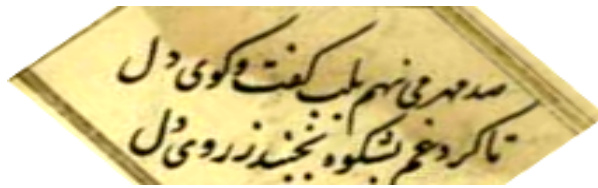 صد مهر می نهم بلب گفت و کوی دل
تا کرد غم بشکوه نخیند ز روی دل